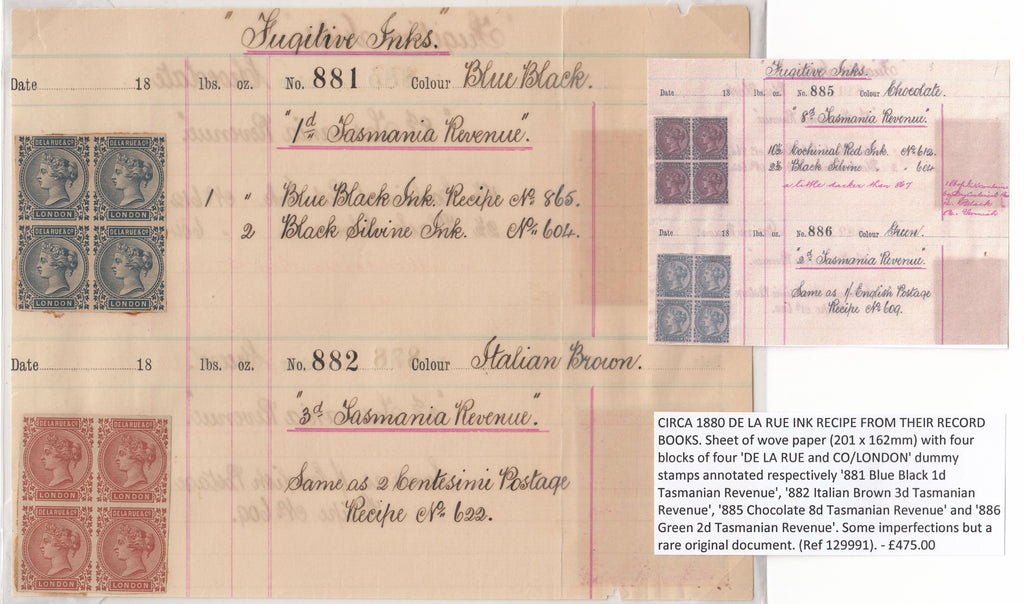 "Fugitive Inks."
Date 18 lbs. oz. No. 881 Colour Blue Black.
"1d Tasmania Revenue"
1 " Blue Black Ink. Recipe No 865.
2 Black Silvine Ink. No 604.
DE LA RUE & CO DE LA RUE & CO
LONDON LONDON
DE LA RUE & CO DE LA RUE & CO
LONDON LONDON
Date 18 lbs. oz. No. 882 Colour Italian Brown.
"3d Tasmania Revenue"
Same as 2 Centesimi Postage
Recipe No 622.
DE LA RUE & CO DE LA RUE & CO
LONDON LONDON
DE LA RUE & CO DE LA RUE & CO
LONDON LONDON
"Fugitive Inks.
Date 18 lbs. oz. No. 885 Colour Chocolate.
"8d Tasmania Revenue"
Cochineal Red Ink. No 612.
Black Silvine " " 604
a little darker than 867
Date 18 lbs. oz. No. 886 Colour Green.
"2d Tasmania Revenue"
Same as 1/- English Postage
Recipe No 609.
CIRCA 1880 DE LA RUE INK RECIPE FROM THEIR RECORD
BOOKS. Sheet of wove paper (201 x 162mm) with four
blocks of four 'DE LA RUE and CO/LONDON' dummy
stamps annotated respectively '881 Blue Black 1d
Tasmanian Revenue', '882 Italian Brown 3d Tasmanian
Revenue', '885 Chocolate 8d Tasmanian Revenue' and '886
Green 2d Tasmanian Revenue'. Some imperfections but a
rare original document. (Ref 129991). - £475.00